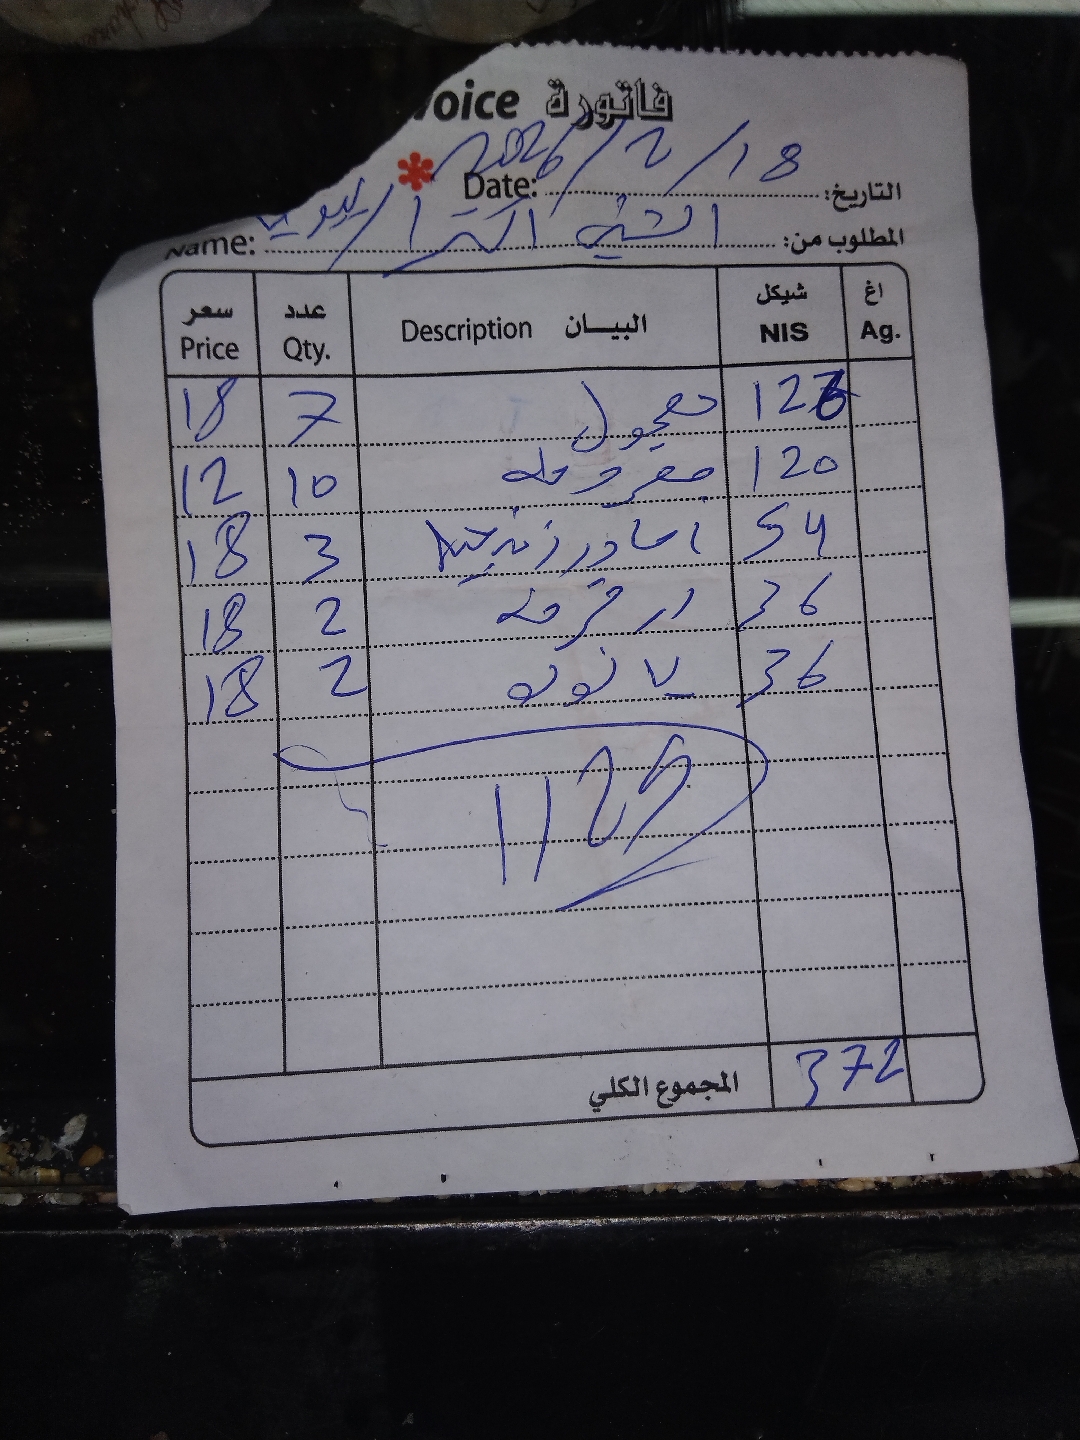 voice فاتورة
Date: 2026/2/18 التاريخ:
Name: المطلوب من:
سعر عدد البيـــان شيكل اغ
Price Qty. Description NIS Ag.
18 7 معجول 126
12 10 مفرومه 120
18 3 54
18 2 36
18 2 36
1125
المجموع الكلي 372